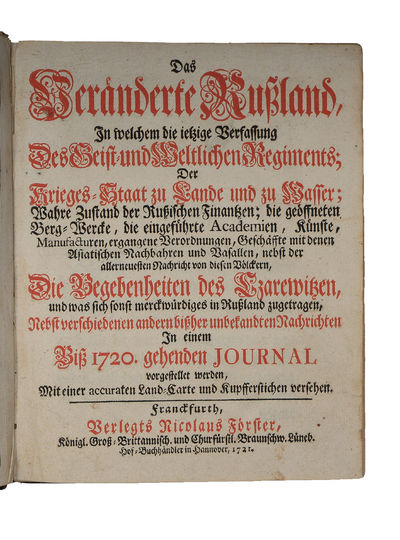 Das
Veränderte Rußland,
In welchem die ietzige Verfassung
Des Geist- und Weltlichen Regiments;
Der
Krieges-Staat zu Lande und zu Wasser;
Wahre Zustand der Rußischen Finantzen; die geöffneten
Berg-Wercke, die eingeführte Academien, Künste,
Manufacturen, ergangene Verordnungen, Geschäffte mit denen
Asiatischen Nachbahren und Vasallen, nebst der
allerneuesten Nachricht von diesen Völckern,
Die Begebenheiten des Czarewitzen,
und was sich sonst merckwürdiges in Rußland zugetragen,
Nebst verschiedenen andern bißher unbekandten Nachrichten
In einem
Biß 1720. gehenden JOURNAL
vorgestellet werden,
Mit einer accuraten Land-Carte und Kupfferstichen versehen.
Franckfurth,
Verlegts Nicolaus Förster,
Königl. Groß-Brittannisch. und Churfürstl. Braunschw. Lüneb.
Hof-Buchhändler in Hannover, 1721.